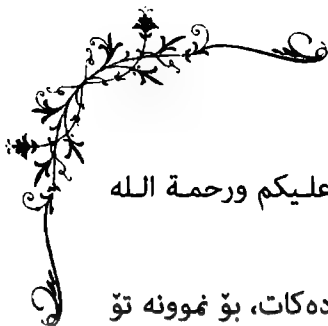 عليكم ورحمة الله
دەكات، بۆ نموونه تۆ